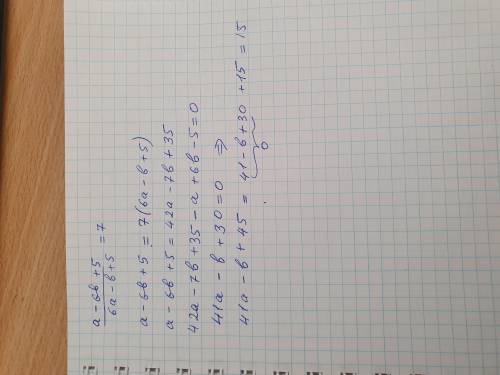 a - 6b + 5 / 6a - b + 5 = 7
a - 6b + 5 = 7(6a - b + 5)
a - 6b + 5 = 42a - 7b + 35
42a - 7b + 35 - a + 6b - 5 = 0
41a - b + 30 = 0 ⇒
41a - b + 45 = 41 - b + 30 + 15 = 15
0